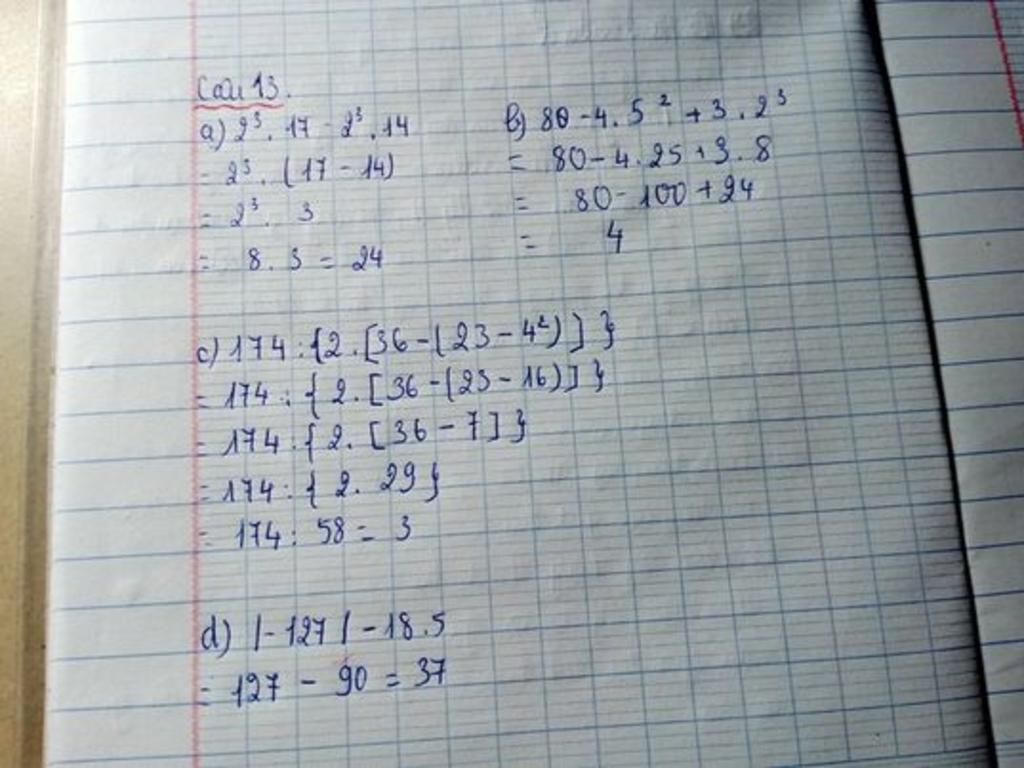 Câu 13.
a) 2³. 17 - 2³. 14
= 2³. (17 - 14)
= 2³. 3
= 8. 3 = 24
b) 80 - 4. 5² + 3. 2³
= 80 - 4. 25 + 3. 8
= 80 - 100 + 24
= 4
c) 174 : {2. [36 - (23 - 4²)] }
= 174 : { 2. [36 - (23 - 16)] }
= 174 : { 2. [36 - 7] }
= 174 : { 2. 29 }
= 174 : 58 = 3
d) |- 127 | - 18. 5
= 127 - 90 = 37